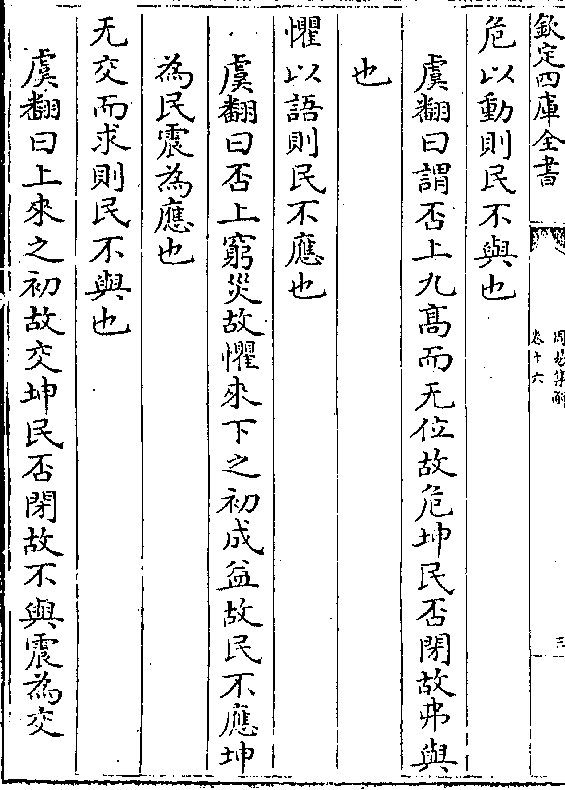 欽定四庫全書
周易集解
卷十六
三
危以動則民不與也
虞翻曰謂否上九髙而无位故危坤民否閉故弗與
也
懼以語則民不應也
虞翻曰否上窮災故懼來下之初成益故民不應坤
為民震為應也
无交而求則民不與也
虞翻曰上來之初故交坤民否閉故不與震為交